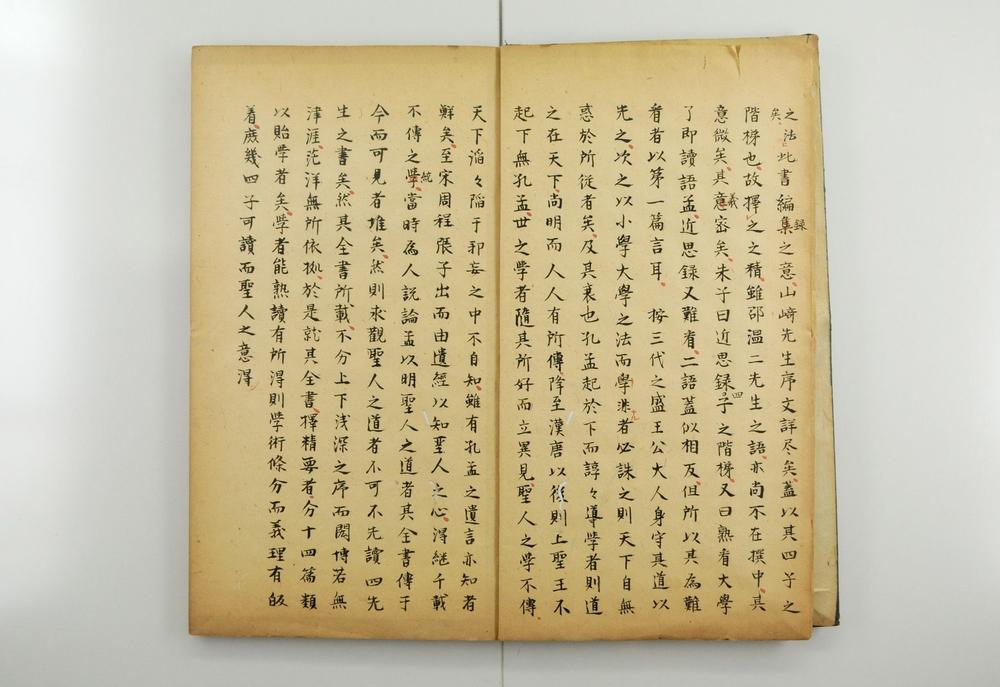 之法矣此書編集錄之意山﨑先生序文詳尽矣蓋以其四子之
階梯也故擇之之精雖邵温二先生之語亦尚不在撰中其
意微矣其意義密矣朱子曰近思録四子之階梯又曰熟看大學
了即讀語孟近思録又難看二語蓋似相反但所以其為難
看者以第一篇言耳 按三代之盛王公大人身守其道以
先之次之以小學大學之法而學者必誅之則天下自無
惑於所從者矣及其衰也孔孟起於下而諄々導學者則道
之在天下尚明而人人有所傳降至漢唐以後則上聖王不
起下無孔孟世之學者隨其所好而立異見聖人之學不傳
天下滔々陷于邪妄之中不自知雖有孔孟之遺言亦知者
鮮矣至宋周程張子出而由遺經以知聖人之心得継千載
不傳之學統當時為人説論孟以明聖人之道者其全書傳于
今而可見者堆矣然則求觀聖人之道者不可不先讀四先
生之書矣然其全書所載不分上下浅深之序而閎博若無
津涯茫洋無所依拠於是就其全書擇精要者分十四篇類
以貽學者矣學者能熟讀有所得則学術條分而義理有皈
着庶幾四子可讀而聖人之意得